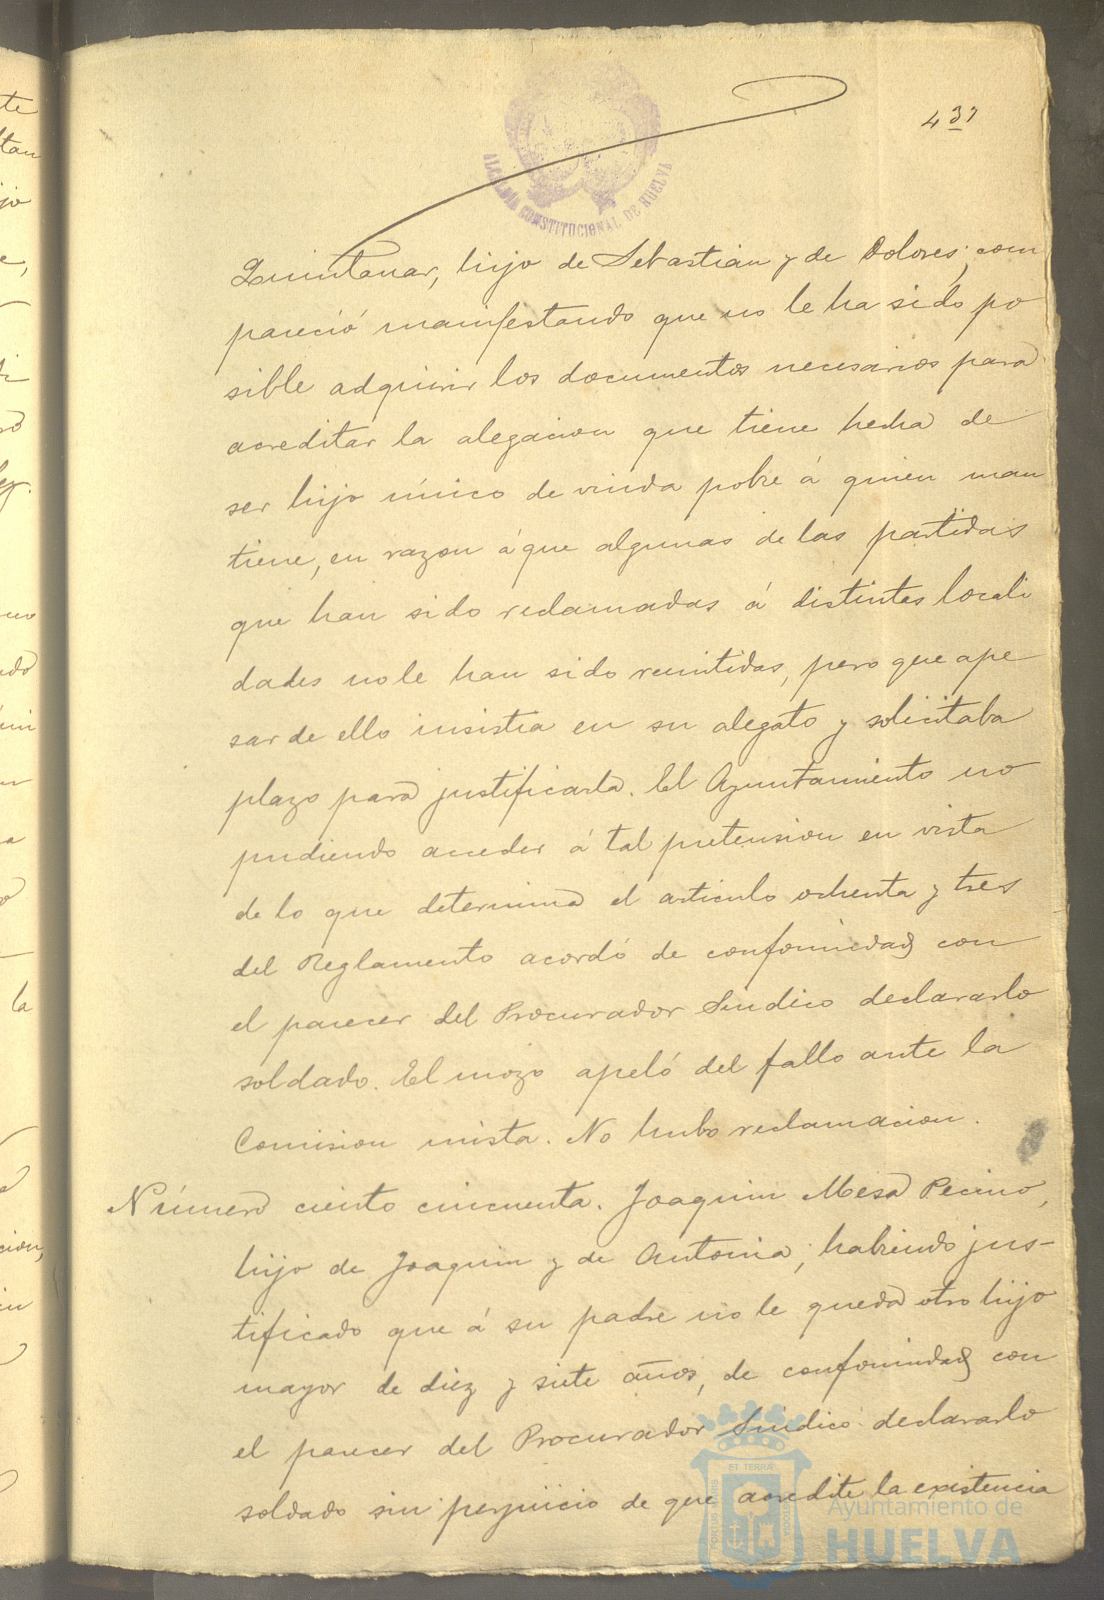 431
ALCALDÍA CONSTITUCIONAL DE HUELVA
Quintanar, hijo de Sebastian y de Dolores; com
pareció manifestando que no le ha sido po
sible adquirir los documentos necesarios para
acreditar la alegacion que tiene hecha de
ser hijo único de viuda pobre á quien man
tiene, en razon á que algunas de las partidas
que han sido reclamadas á distintas locali
dades no le han sido remitidas, pero que ape
sar de ello insistia en su alegato y solicitaba
plazo para justificarla. El Ayuntamiento no
pudiendo acceder á tal pretension en vista
de lo que determina el articulo ochenta y tres
del Reglamento acordó de conformidad con
el parecer del Procurador Sindico declararlo
soldado. El mozo apeló del fallo ante la
Comision mista. No hubo reclamacion.
Número ciento cincuenta. Joaquin Mesa Pecino,
hijo de Joaquin y de Antonia; habiendo jus-
tificado que á su padre no le queda otro hijo
mayor de diez y siete años, de conformidad con
el parecer del Procurador Sindico declararlo
soldado sin perjuicio de que acredite la existencia
Ayuntamiento de
HUELVA